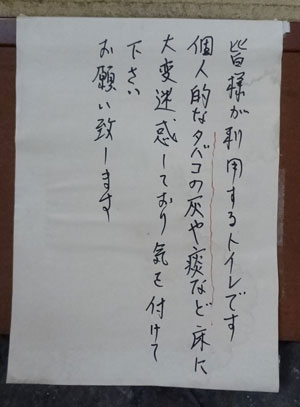 皆様が利用するトイレです
個人的なタバコの灰や痰など床に
大変迷惑しており気を付けて
下さい
お願い致します